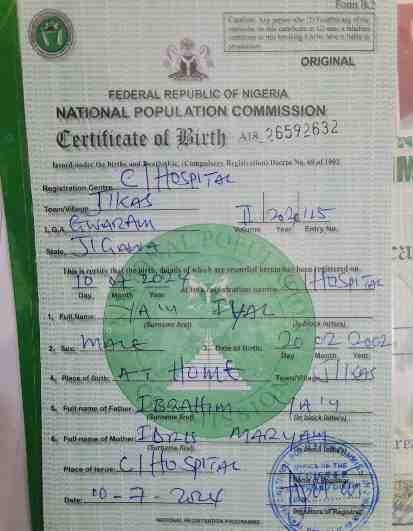 Form B.2
ORIGINAL
FEDERAL REPUBLIC OF NIGERIA
NATIONAL POPULATION COMMISSION
Certificate of Birth A18 26592632
Issued under the Births and Deaths etc. (Compulsory Registration) Decree No. 69 of 1992
Registration Centre C/HOSPITAL
Town/Village JIKAS
L.G.A. GWARAM II 2024 115
Volume Year Entry No.
State JIGAWA
This is certify that the birth, details of which are recorded herein has been registered on
10 07 2024 at this registration centre C/HOSPITAL
Day Month Year
1. Full Name: YA'U
(Surname first) (In block letters)
2. Sex: MALE 3. Date of Birth: 20 02 2002
Day Month Year
4. Place of Birth: AT HOME Town/Village JIKAS
5. Full name of Father: IBRAHIM YA'U
(Surname first) (In block letters)
6. Full name of Mother: IDRIS MARYAM
(Surname first) (In block letters)
Place of Issue: C/HOSPITAL
OFFICE OF THE
Date: 10-7-2024
Signature of Registrar
NATIONAL REGISTRATION PROGRAMME